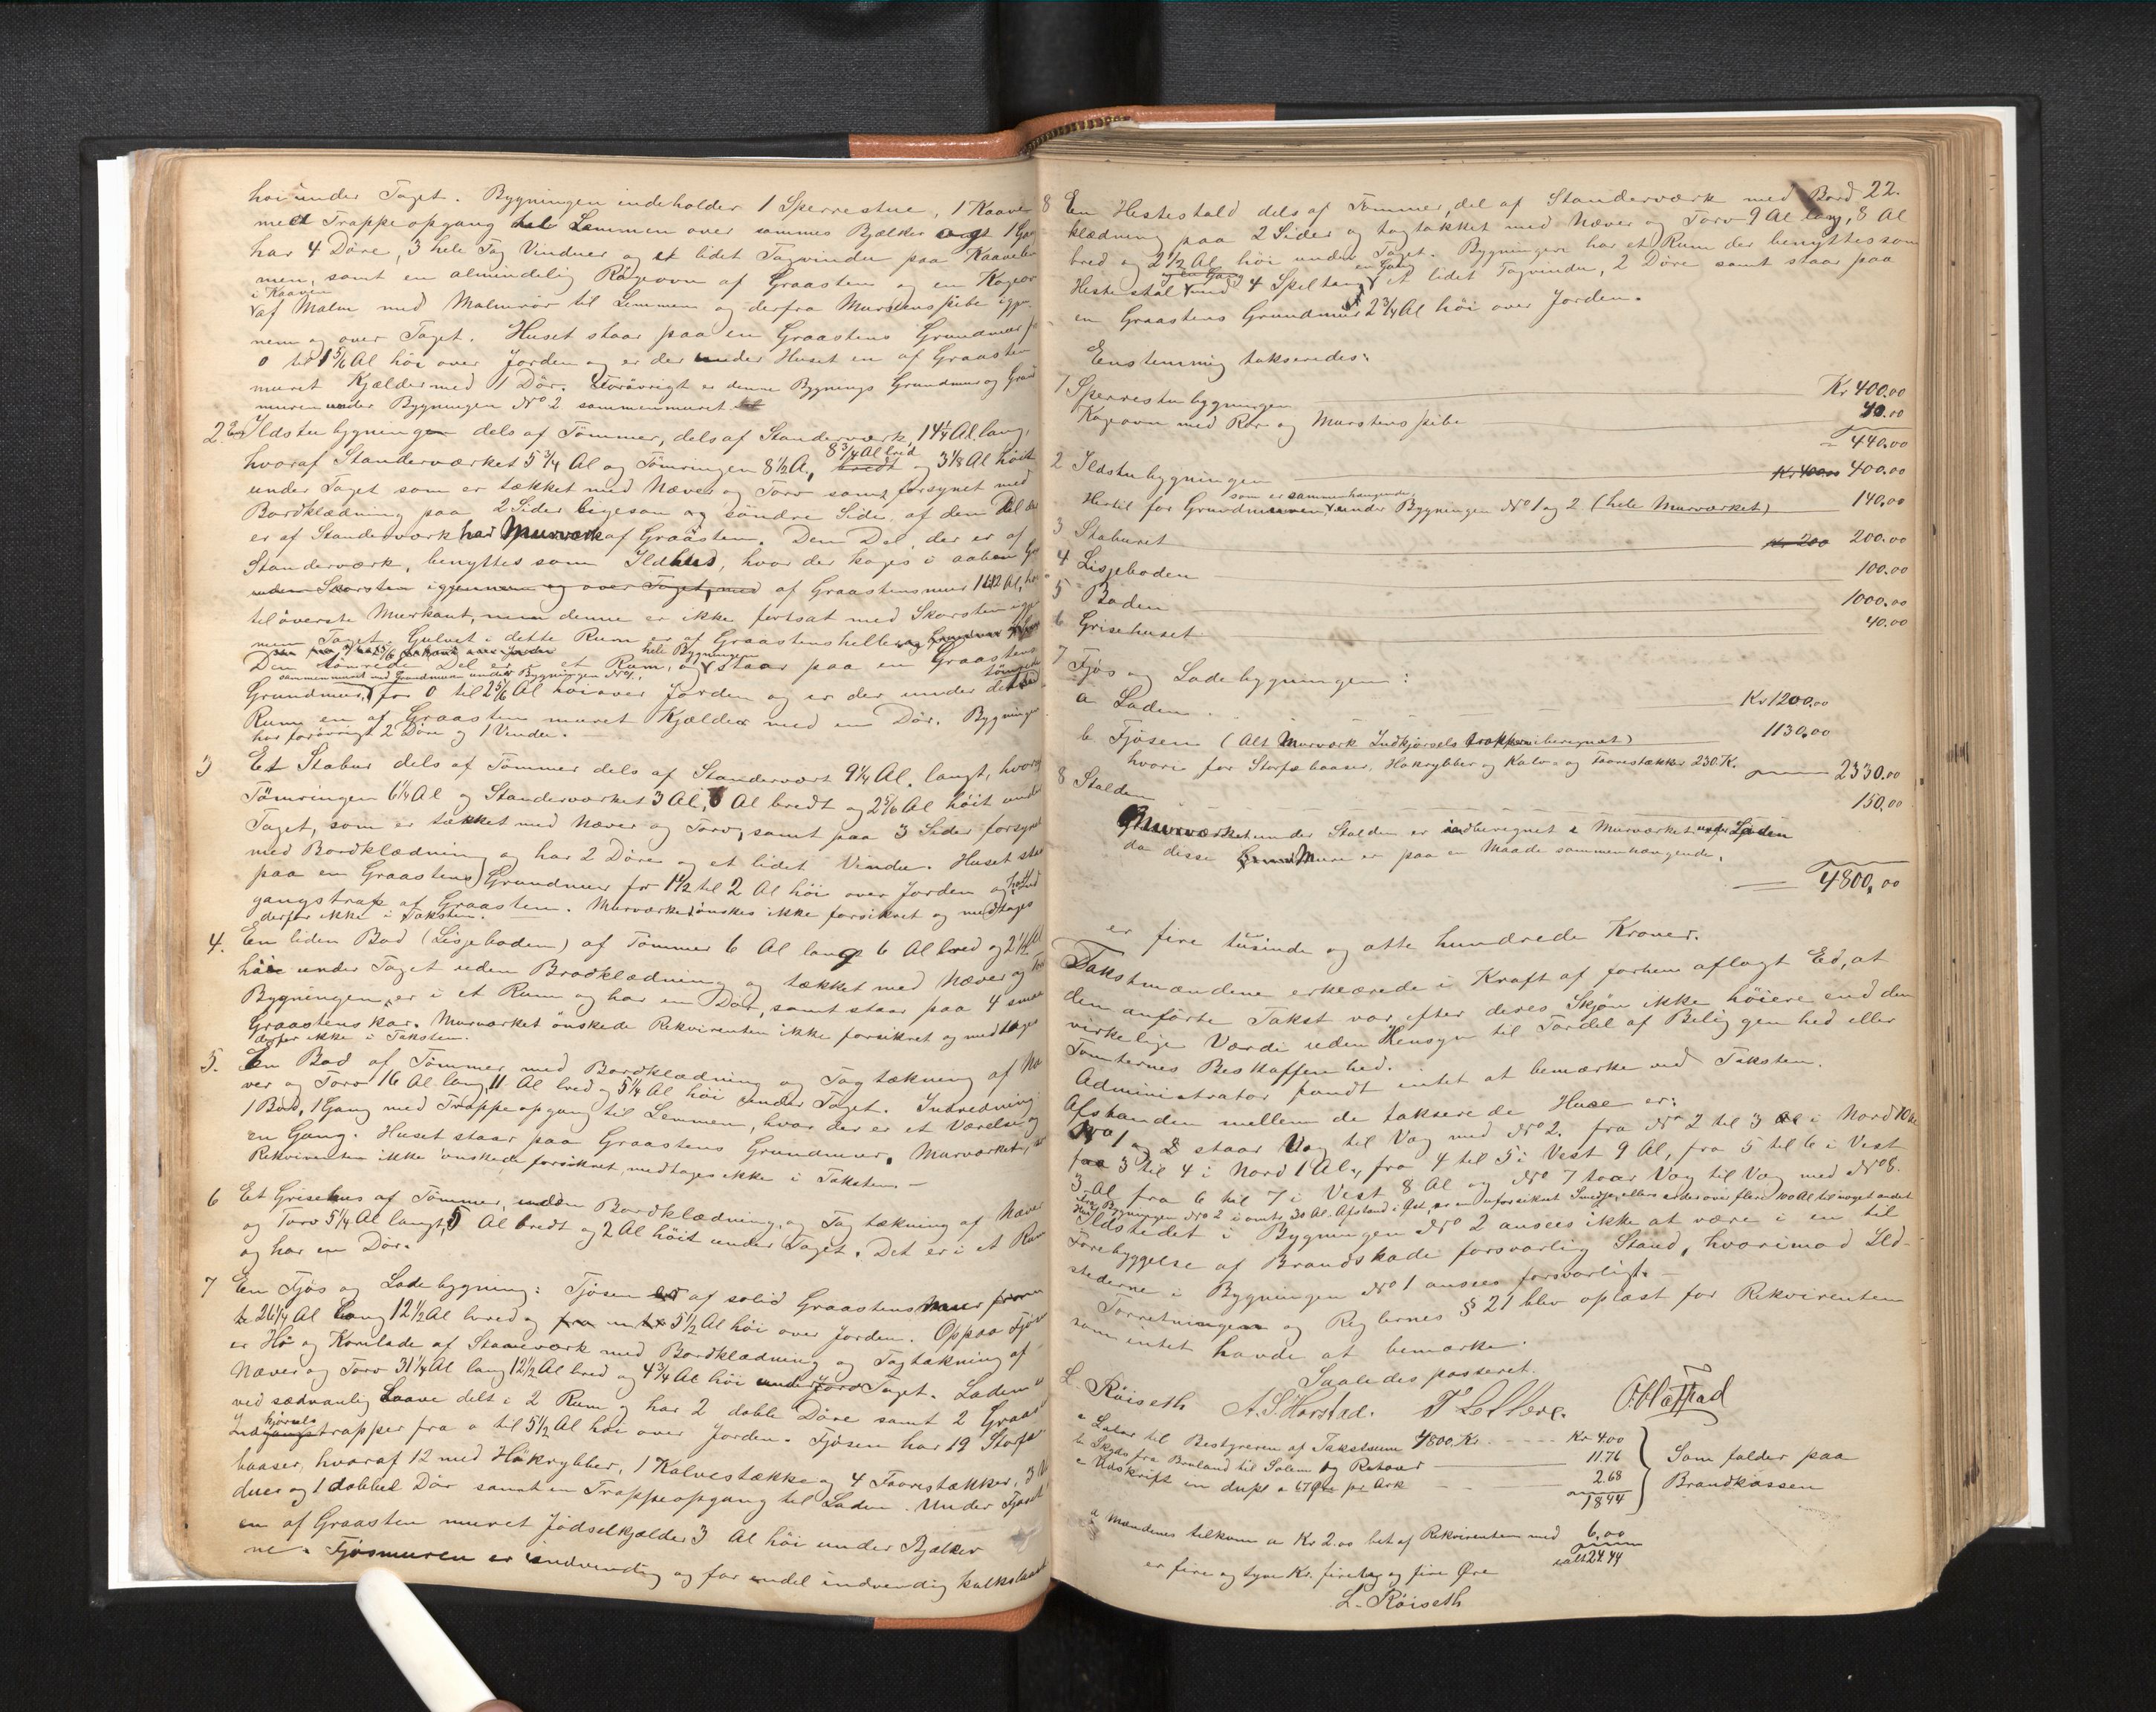 høi under Taget. Bygningen indeholder 1 Sperrestue, 1 Kaave
med Trappeopgang Lemmen over sammes Bjælker og 1
har 4 Døre, 3 hele Fag Vinduer og et lidet Tagvindu paa Kaavelem
men, samt en almindelig Røgeovn af Graasten og en Kogeov
i Kaaven
af Malm med Malmrør til Lemmen og derfra Murstenspibe igjen
nem og over Taget. Huset staar paa en Graastens Grundmur
0 til 1 5/6 Al høi over Jorden og er der under Huset en af Graasten
muret Kjælder med 1 Dør. Forøvrigt er denne Bygnings Grundmur og Grund
muren under Bygningen No 2 sammenmuret.
2. En Ildstubygning dels af Tømmer, dels af Standerværk, 14 1/4 Al. lang,
8 3/4 Al bred
hvoraf Standerværket 5 3/4 Al og Tømringen 8 1/2 A., bredt og 3 1/8 Al høit
under Taget som er tækket med Næver og Torv samt forsynet med
Bordklædning paa 2 Sider ligesom søndre Side af den Del der
er af Standerværk har Murværk af Graasten. Den Del, der er af
Standerværk, benyttes som Ildhus, hvor der koges i aaben
uden Skorsten igjennem og over Taget, med af Graastensmur
til øverste Murkant, men denne er ikke fortsat med Skorsten igjen
nem Taget. Gulvet i dette Rum er af Graastenshelle
hele Bygningen
Den tømrede Del er et Rum, og staar paa en Graastens
sammenmuret med Grundmuren under Bygningen No 1,
Grundmur, for 0 til 2 5/6 Al høi over Jorden og er der under det tømrede
Rum en af Graasten muret Kjælder med en Dør. Bygningen
har forøvrigt 2 Døre og 1 Vindu.
3 Et Stabur dels af Tømmer dels af Standerværk 9 1/4 Al. langt, hvoraf
Tømringen 6 1/4 Al og Standerværket 3 Al, 6 Al bredt og 2 5/6 Al høit under
Taget, som er tækket med Næver og Torv, samt paa 3 Sider forsynet
med Bordklædning og har 2 Døre og et lidet Vindu. Huset staar
paa en Graastens Grundmur for 1 1/2 til 2 Al høi over Jorden og har Ind
gangstrap af Graasten. Murværket ønskes ikke forsikret og medtages
derfor ikke i Taksten.
4. En liden Bod (Lisjeboden) af Tømmer 6 Al lang 6 Al bred og 2 1/2 Al
høi under Taget uden Bordklædning og tækket med Næver og Torv
Bygningen er i et Rum og har en Dør, samt staar paa 4 smaa
Graastenskar. Murværket ønskede Rekvirenten ikke forsikret og medtages
derfor ikke i Taksten.
5. En Bod af Tømmer med Bordklædning og Tagtækning af Næ
ver og Torv 16 Al lang, 11 Al bred og 5 1/4 Al høi under Taget. Indredning:
1 Bod, 1 Gang med Trappeopgang til Lemmen, hvor der er et Værelse og
en Gang. Huset staar paa Graastens Grundmur. Murværket, som
Rekvirenten ikke ønskede forsikret, medtages ikke i Taksten. —
6 Et Grisehus af Tømmer, uden Bordklædning, og Tagtækning af Næver
og Torv 5 1/4 Al langt, 5 Al bredt og 2 Al høit under Taget. Det er i et Rum
og har en Dør.
7 En Fjøs og Ladebygning: Fjøsen er af solid Graastens Muur
26 1/4 Al lang 12 1/2 Al bred og 5 1/2 Al høi over Jorden. Oppaa Fjøsen
er Hø og Kornlade af Stanværk med Bordklædning og Tagtækning af
Næver og Torv 31 1/4 Al lang 12 1/2 Al bred og 4 3/4 Al høi under Taget. Laden er
ved sædvanlig Laave delt i 2 Rum og har 2 doble Døre samt 2 Graastens
kjørsels
Indgangstrapper fra 0 til 5 1/2 Al høi over Jorden. Fjøsen har 19 Storfæ-
baaser, hvoraf 12 med Høkrybber, 1 Kalvestække og 4 Faarestækker, 3 Vin
duer og 1 dobbel Dør samt en Trappeopgang til Laden. Under Fjøset
en af Graasten muret Gjødselkjælder 3 Al høi under Bjælker
ne. Fjøsmuren er indvendig og for endel udvendig kalkslaaet
22.
8 En Hestestald dels af Tømmer, del af Standerværk med Bord
klædning paa 2 Sider og tagtækket med Næver og Torv 9 Al lang, 8 Al
bred og 2 1/2 Al høi under Taget. Bygningen har et Rum der benyttes som
og en Gang en Gang
Hestestal med 4 Speltaug, et lidet Tagvindu, 2 Døre samt staar paa
en Graastens Grundmur 2 3/4 Al høi over Jorden.
Enstemmig takseredes:
1 Sperrestubygningen Kr 400.00
Kogeovn med Rør og Murstenspibe 40.00
440.00
2 Ildstubygningen Kr 400.00 400.00
som er sammenhængende
Hertil for Grundmuren under Bygningen No 1 og 2 (hele Murværket) 140.00
3 Staburet Kr 200 200.00
4 Lisjeboden 100.00
5 Boden 1000.00
6 Grisehuset 40.00
7 Fjøs og Ladebygningen:
a Laden Kr 1200.00
b. Fjøsen (Alt Murværk Indkjørselstrapperne iberegnet) 1130.00
hvori for Storfæbaaser, Høkrybber og Kalve- og Faarestække 230 K. 2330.00
8 Stalden 150.00
Murværket under Stalden er indberegnet i Murværket under Laden
da disse Mure er paa en Maade sammenhængende.
4800,00
er fire tusinde og otte hundrede Kroner.
Takstmændene erklærede i Kraft af forhen aflagt Ed, at
den anførte Takst var efter deres Skjøn ikke høiere end den
virkelige Værdi uden Hensyn til Fordel af Beliggenhed eller
Tomternes Beskaffenhed.
Administrator fandt intet at bemærke ved Taksten.
Afstanden mellem de takserede Huse er:
No 1 og 8 staar Væg til Væg med No 2. fra No 2 til 3 i Nord 10 Al
fra 3 til 4 i Nord 1 Al., fra 4 til 5 i Vest 9 Al, fra 5 til 6 i Vest
3 Al, fra 6 til 7 i Vest 8 Al og No 7 staar Væg til Væg med No 8.
Fra Bygningen No 2 i omtr. 30 Al. Afstand i Øst, er en uforsikret Smedje, ellers er der over flere 100 Al til noget andet
Hus.
Ildstedet i Bygningen No 2 ansees ikke at være i en til
Forebyggelse af Brandskade forsvarlig Stand, hvorimod Ild-
stederne i Bygningen No 1 ansees forsvarligt. —
Forretningen og Reglernes § 21 blev oplæst for Rekvirenten
som intet havde at bemærke.
Saaledes passeret.
L. Röiseth A. S. Harstad.
a Salær til Bestyreren af Takstsum 4800 Kr. Kr 4.00
b Skyds fra Bruland til Solem og Retour 11.76
c Udskrift in dupl a 67 Øre pr Ark 2.68
18 44
Som falder paa
Brandkassen
Mændenes tilkomm a Kr 2.00 bet af Rekvirenten med 6.00
ialt 24.44
er fire og tyve Kr. firety og fire Øre
L. Röiseth